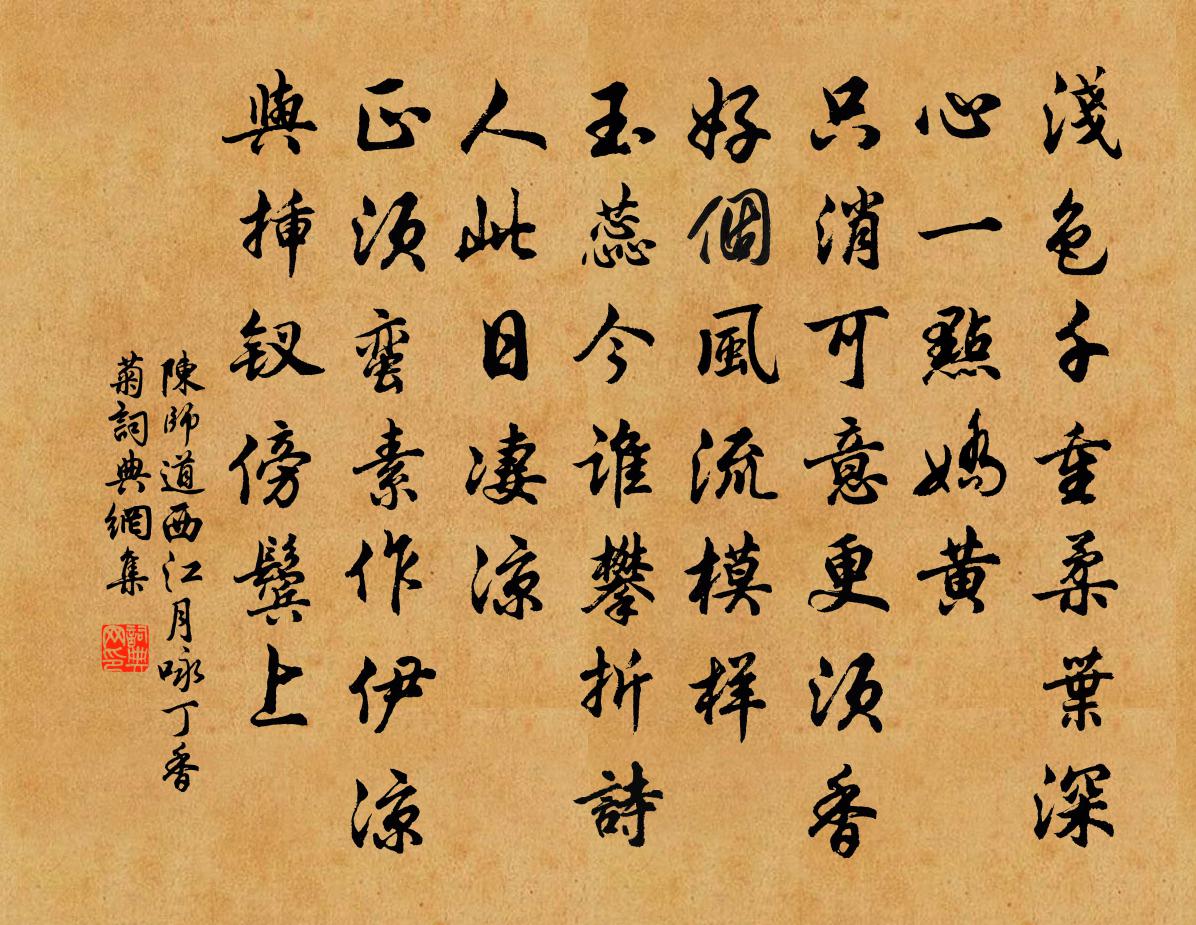 淺色千重柔葉深
心一點嬌黃
只消可意更須香
好個風流模样
玉蕊今谁攀折詩
人此日凄凉
正須蛮素作伊凉
與挿釵傍鬓上
陳師道西江月咏丁香
菊詞典網集
詞典网印